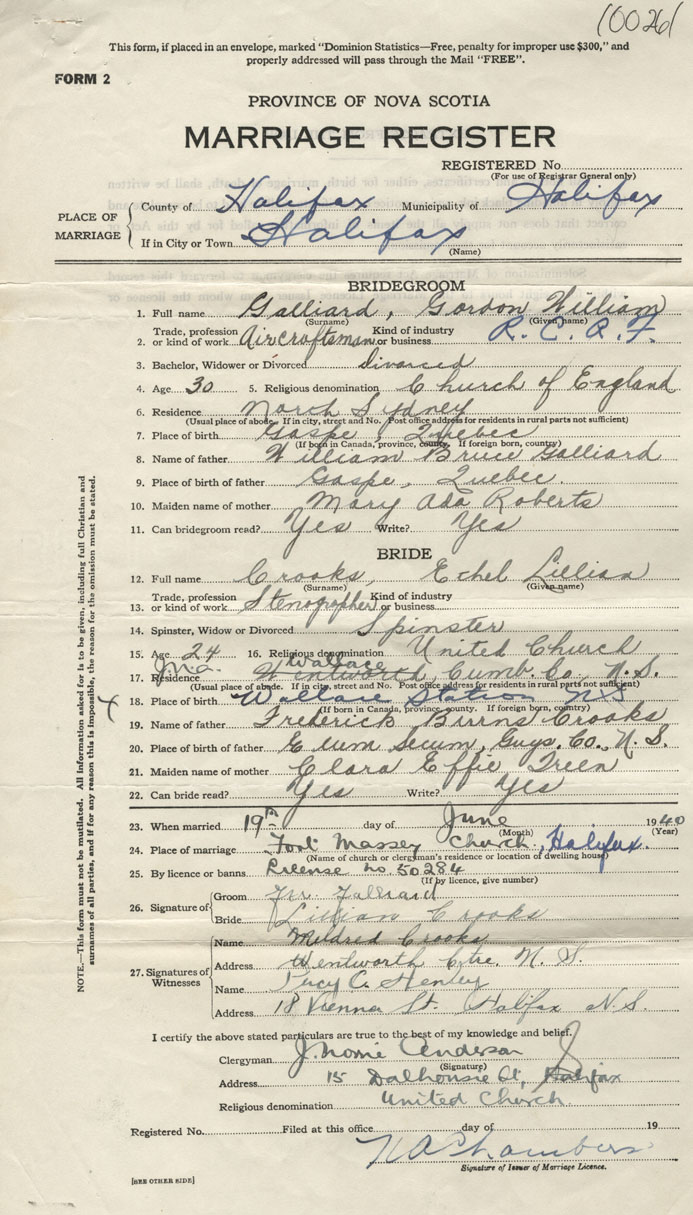 10026
This form, if placed in an envelope, marked "Dominion Statistics—Free, penalty for improper use $300," and
properly addressed will pass through the Mail "FREE".
FORM 2
PROVINCE OF NOVA SCOTIA
MARRIAGE REGISTER
REGISTERED No.
(For use of Registrar General only)
PLACE OF MARRIAGE
County of Halifax Municipality of Halifax
If in City or Town Halifax
(Name)
BRIDEGROOM
1. Full name Galliard, Gordon William
(Surname) (Given name)
Trade, profession Kind of industry
2. or kind of work Aircraftsman or business R.C.A.F.
3. Bachelor, Widower or Divorced divorced
4. Age 30 5. Religious denomination Church of England
6. Residence North Sydney
(Usual place of abode. If in city, street and No. Post office address for residents in rural parts not sufficient)
7. Place of birth Gaspe, Quebec
(If born in Canada, province, county. If foreign born, country)
8. Name of father William Bruce Galliard
9. Place of birth of father Gaspe, Quebec.
10. Maiden name of mother Mary Ada Roberts
11. Can bridegroom read? Yes Write? Yes
BRIDE
12. Full name Crooks, Ethel Lillian
(Surname) (Given name)
Trade, profession Kind of industry
13. or kind of work Stenographer or business
14. Spinster, Widow or Divorced Spinster
15. Age 24 16. Religious denomination United Church
Wallace
17. Residence Wentworth, Cumb. Co., N.S.
(Usual place of abode. If in city, street and No. Post office address for residents in rural parts not sufficient)
x 18. Place of birth Wallace Station NS
(If born in Canada, province, county. If foreign born, country)
19. Name of father Frederick Burns Crooks
20. Place of birth of father Ecum Secum, Guys. Co., N.S.
21. Maiden name of mother Clara Effie Treen
22. Can bride read? Yes Write? Yes
23. When married 19th day of June 1940
(Month) (Year)
24. Place of marriage Fort Massey Church, Halifax.
(Name of church or clergyman's residence or location of dwelling house)
25. By licence or banns License no 50284
(If by licence, give number)
26. Signature of
Groom Galliard
Bride Lillian Crooks
27. Signatures of Witnesses
Name Mildred Crooks
Address Wentworth Ctre. N.S.
Name Percy A. Henley
Address 18 Vienna St. Halifax N.S.
I certify the above stated particulars are true to the best of my knowledge and belief.
Clergyman Anderson
(Signature)
Address 15 Dalhousie St, Halifax
Religious denomination United Church
Registered No. Filed at this office day of 19
Chambers
Signature of Issuer of Marriage Licence.
[SEE OTHER SIDE]
NOTE.—This form must not be mutilated. All information asked for is to be given, including full Christian and
surnames of all parties, and if for any reason this is impossible, the reason for the omission must be stated.